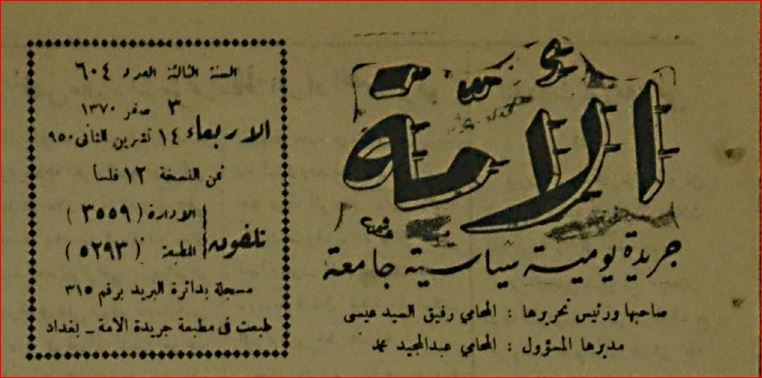 الأمة
جريدة يومية سياسية جامعة
صاحبها ورئيس تحريرها : المحامي رفيق السيد عيسى
مديرها المسؤول : المحامي عبدالمجيد محمد
السنة الثالثة العدد ٦٠٤
٣ صفر ١٣٧٠
الاربعاء ١٤ تشرين الثانى ٩٥٠
ثمن النسخة ١٢ فلساً
تلفون
الادارة ( ٣٥٥٩ )
المطبعة ( ٥٢٩٣ )
مسجلة بدائرة البريد برقم ٣١٥
طبعت فى مطبعة جريدة الامة ـ بغداد